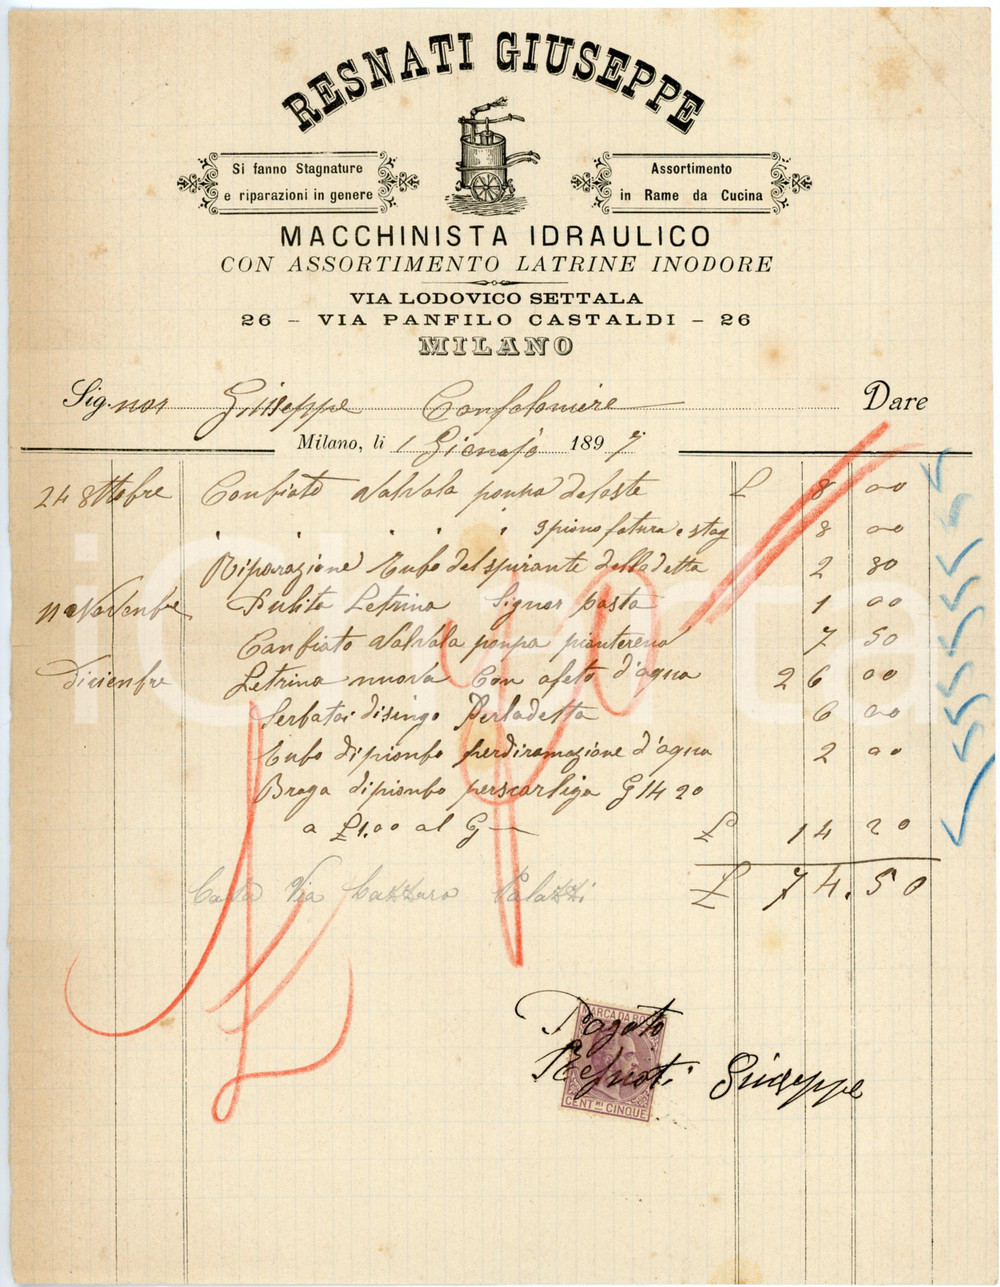 RESNATI GIUSEPPE
Si fanno Stagnature
e riparazioni in genere
Assortimento
in Rame da Cucina
MACCHINISTA IDRAULICO
CON ASSORTIMENTO LATRINE INODORE
VIA LODOVICO SETTALA
26 - VIA PANFILO CASTALDI - 26
MILANO
Sig.nor Giuseppe Confaloniere Dare
Milano, li 1 Gienajo 1897
24 8ttobre Canbiato Valvala ponpa £ 8 00
" " " " " 3 piono fatura e stag 8 00
Riparazione Tubo del spirante della detta 2 80
Novenbre Pulito Letrina Signor pasta 1 00
Canbiato Valvala ponpa piantereno 7 50
Dicienbre Letrina nuova Con afeto d'aqua 26 00
Serbatoi di singo Per la detta 6 00
Tubo di pionbo per diramazione d'aqua 2 00
Braga di pionbo per scarliga G 14 20
a £1.00 al G £ 14 20
£ 74.50
Casa Via Lazzaro Palazzi
MARCA DA BO
Pagato
Resnati Giuseppe
CENT.MI CINQUE